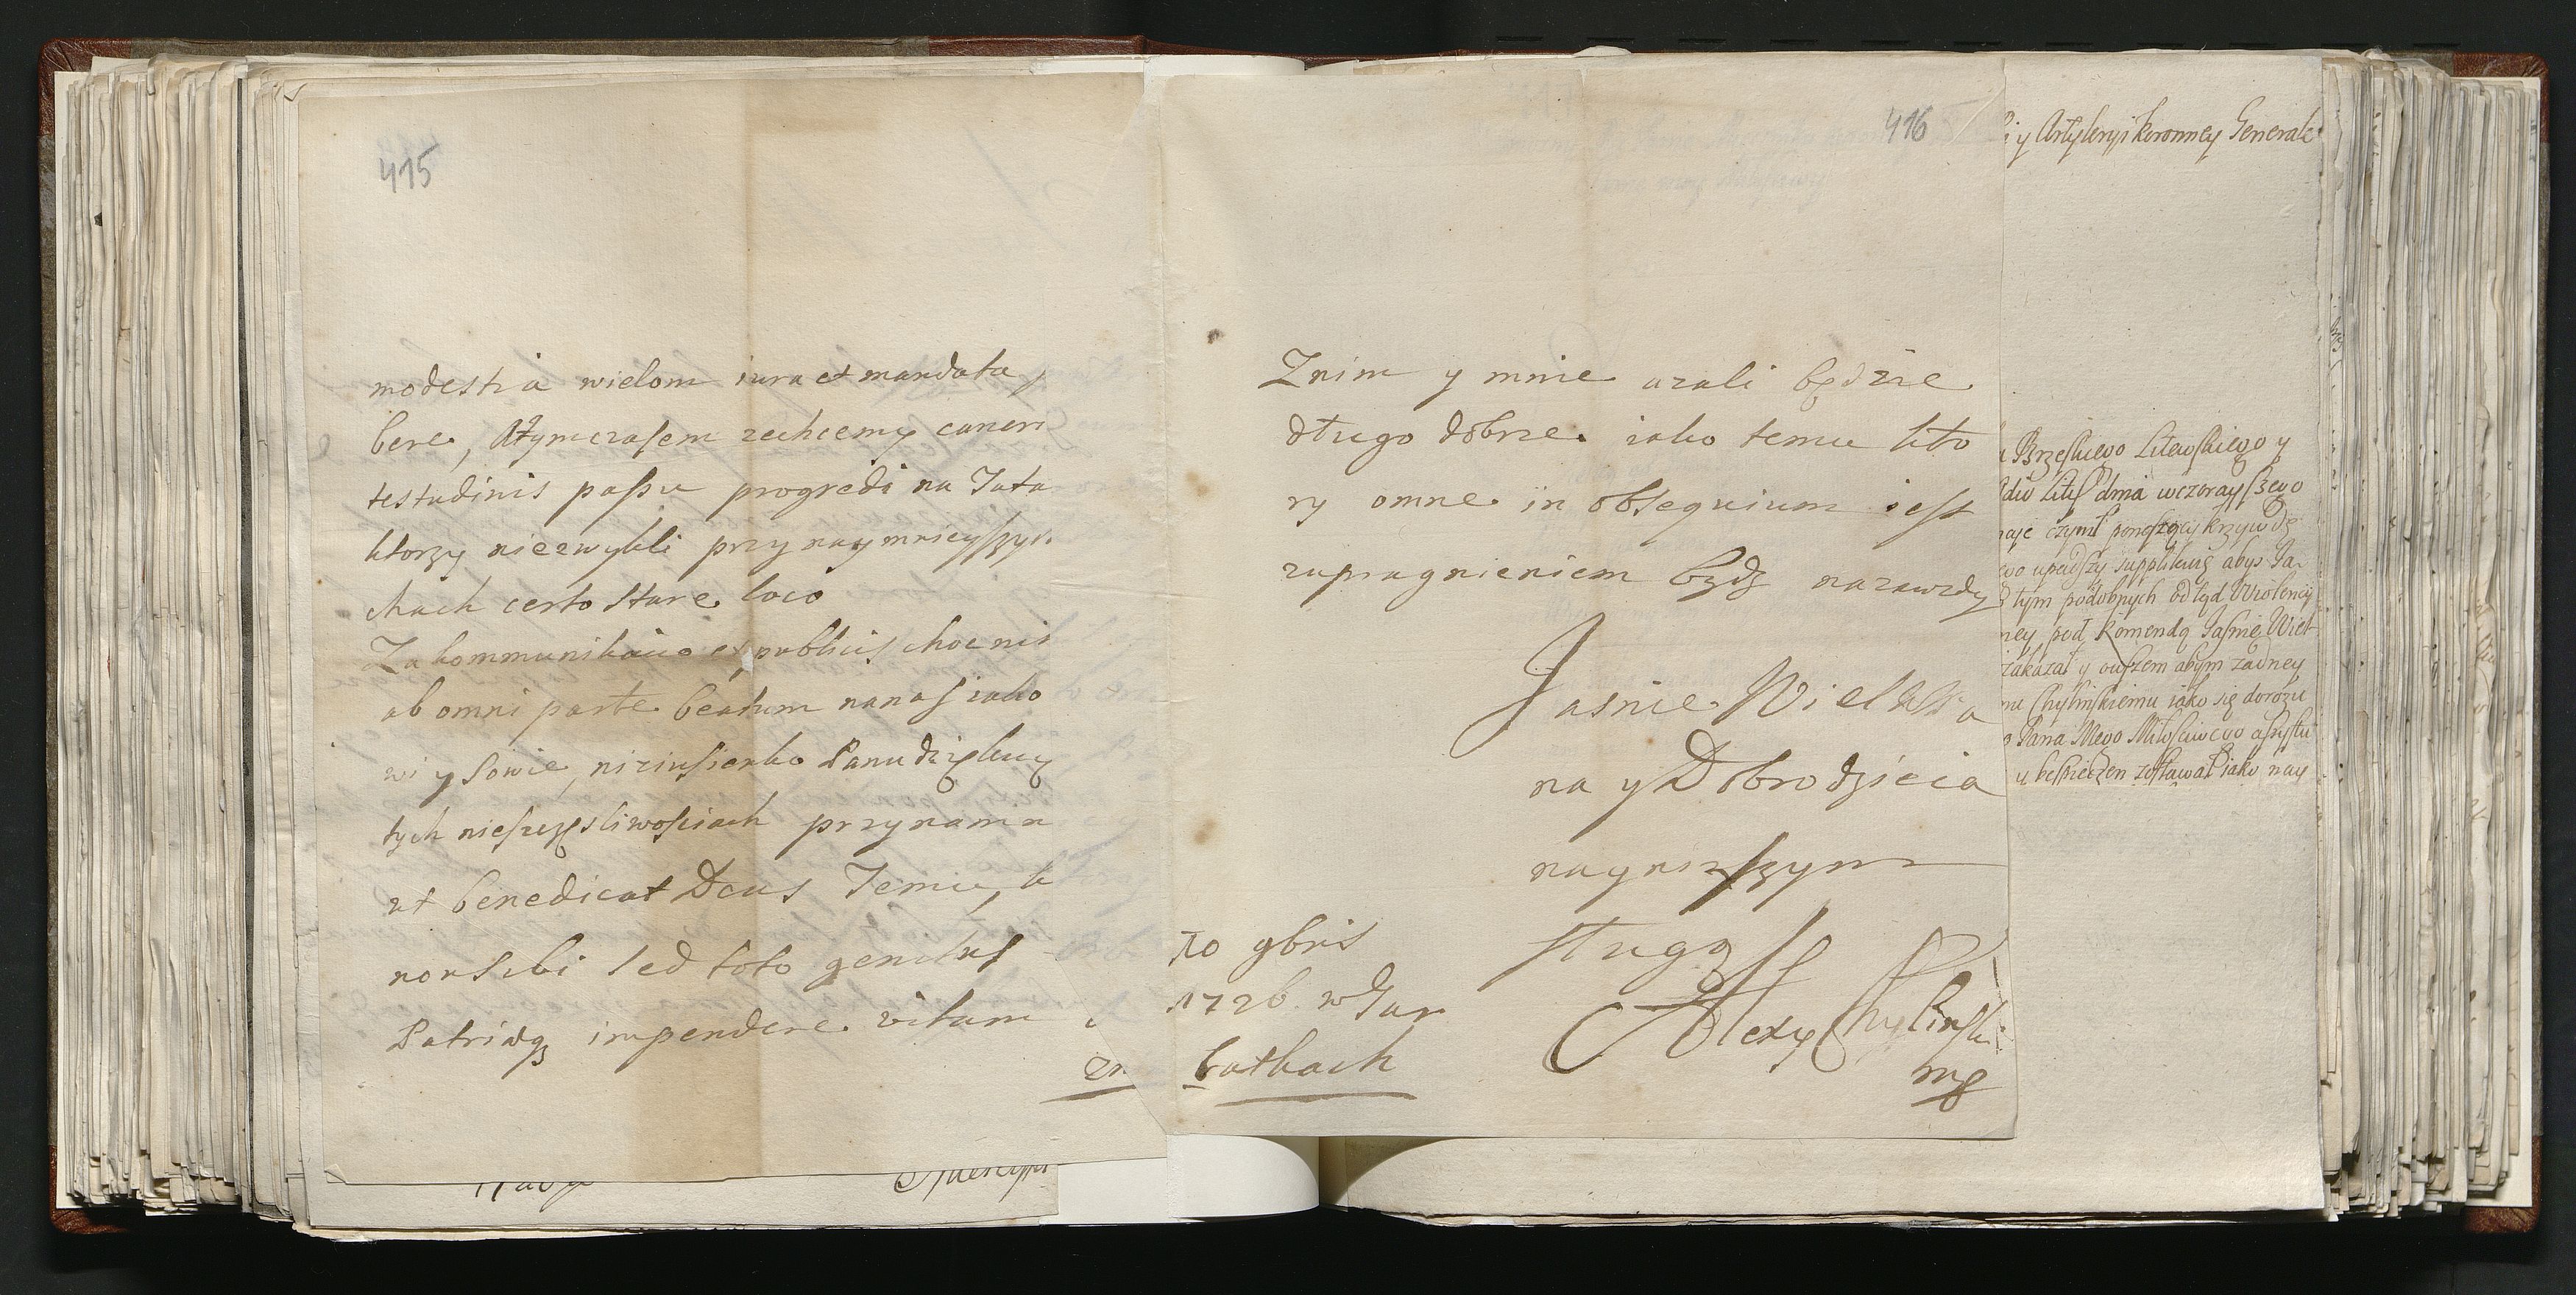 415
modestia wielom iura et mandata
bere, Atymczasem zechcemy caneri
testudinis passu progredi na Tata
ktorzy niezwykli przy naymnieyszych
chach certo stare loco
Za kommunikacio ex publicis choc nis
ab omni parte beatum nanas iako
wi y Sowie, Panu dziękuię
tych nieszczęsliwosciach przynamn
ut benedicat Deus Temu, k
non sibi sed toto genitus
Patriaeq impendere vitam
zn
416
Znim y mnie azali będzie
długo dobrze iako temu kto
ry omne in obsequium iest
zapragnieniem bydz nazawzdy
Jasnie Wielm Pa
na y Dobrodzieia
nayniższym
sługą
Alexy Chyliński
mp
10 9bris
1726 w Gar
batkach
i y Artyleryi koronney Generale
Brzeskiego Litewskiego y
dw Litt dnia wczorayszego
aję czymł ponoszący krzywdę
wo upadszy supplikuię abyś Ja
tym podobnych odtąd Violencij
ney pod komendą Jasnie Wiel
zakazał y owszem abym żadney
mu Chylińskiemu iako się dorozu
Pana Mego Miłosciwego assystu
y bespieczen zostawał iako nay